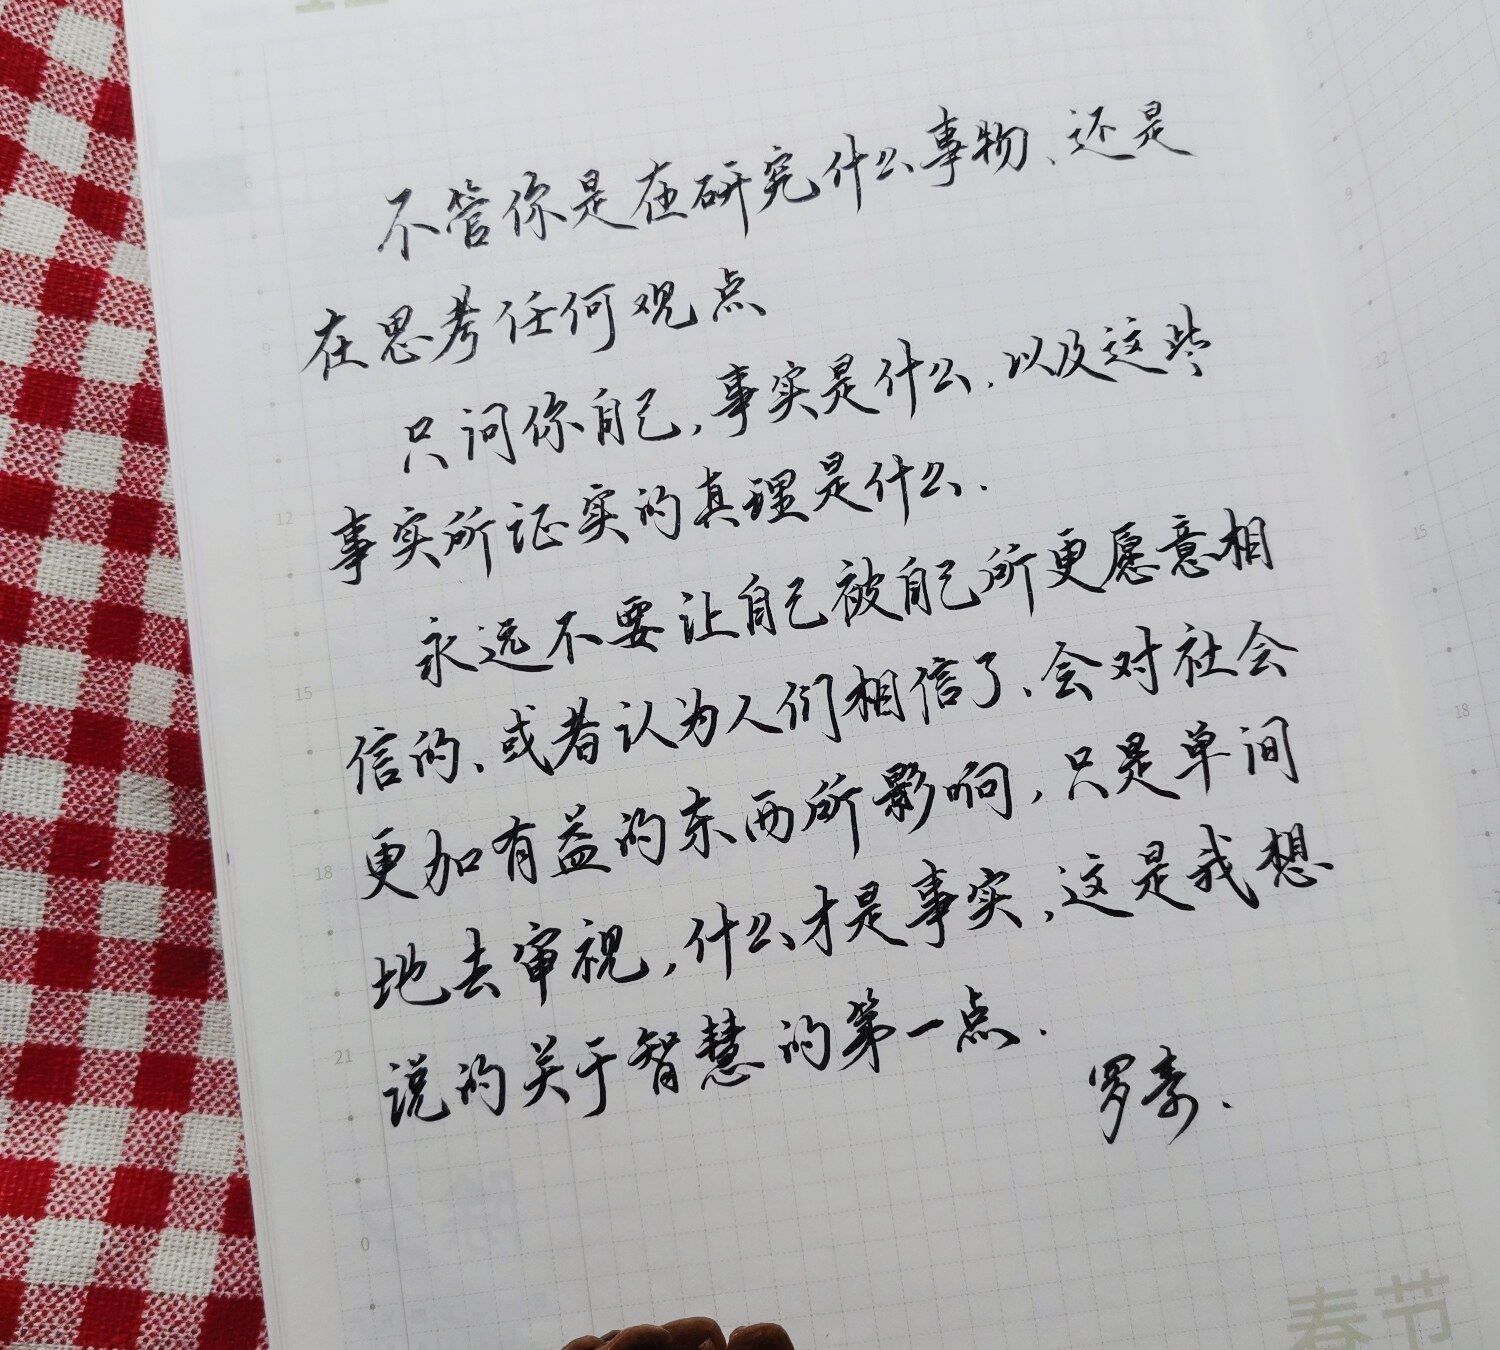 不管你是在研究什么事物、还是
在思考任何观点
只问你自己,事实是什么.以及这些
事实所证实的真理是什么.
永远不要让自己被自己所更愿意相
信的、或者认为人们相信了、会对社会
更加有益的东西所影响,只是单间
地去审视,什么才是事实,这是我想
说的关于智慧的第一点.
罗素.
6
9
12
15
18
21
0
9
12
15
18
春节